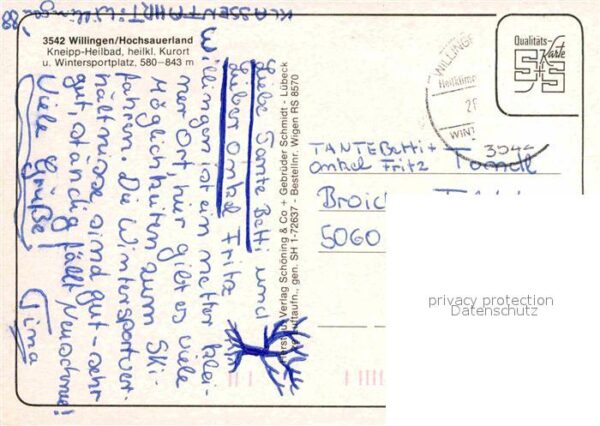 KLASSENFAHRT: Willingen 88
3542 Willingen/Hochsauerland
Kneipp-Heilbad, heilkl. Kurort
u. Wintersportplatz, 580–843 m
Liebe Tante Betti und
lieber Onkel Fritz
Willingen ist ein netter klei-
ner Ort, hier gibt es viele
Möglichkeiten zum Ski-
fahren. Die Wintersportver-
hältnisse sind gut - sehr
gut, ständig fällt Neuschnee!
Viele Grüße
Tina
Verlag Schöning & Co + Gebrüder Schmidt - Lübeck
Luftaufn., gen. SH 1-72637 - Bestellnr. Wigen RS 8570
Qualitäts-Karte
S+S
WILLINGEN
Heilklima
WINT
TANTE Betti +
Onkel Fritz
Broich
5060
privacy protection
Datenschutz